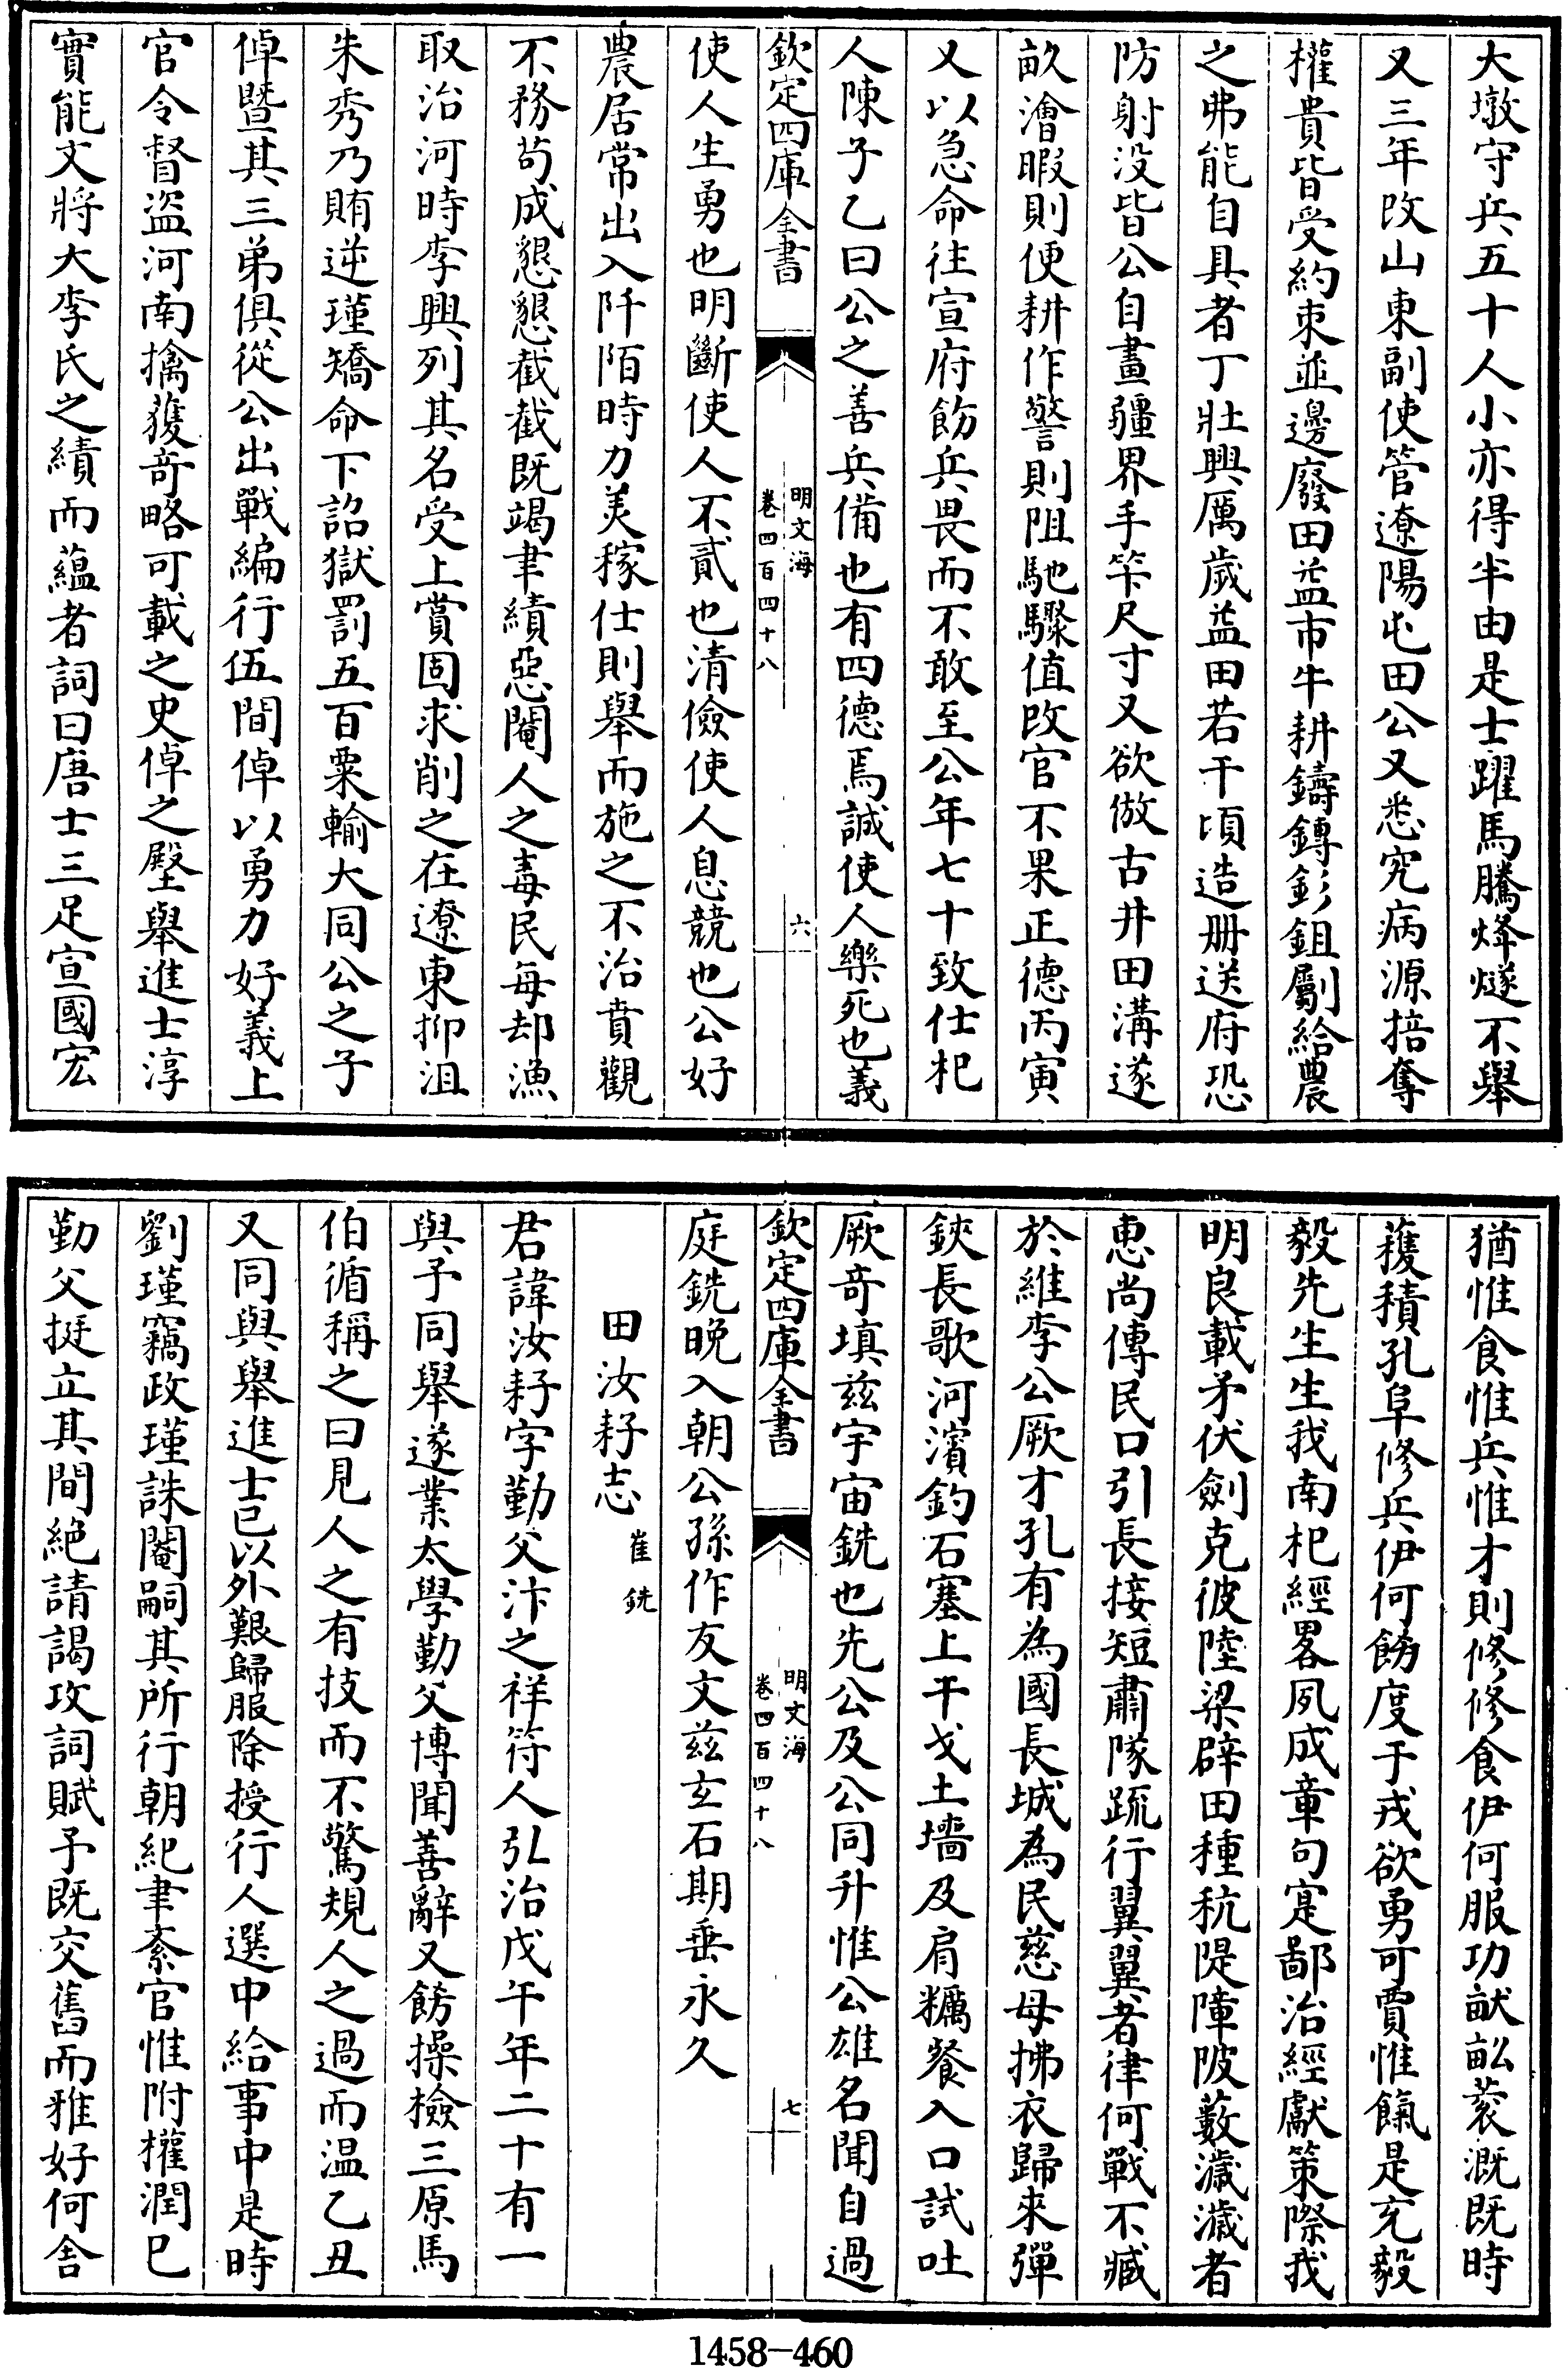 大墩守兵五十人小亦得半由是士躍馬騰烽燧不舉
又三年改山東副使管遼陽屯田公又悉究病源掊奪
權貴皆受約束並邊廢田益市牛耕鑄鎛釤鉏劚給農
之弗能自具者丁壯興厲歲益田若干頃造册送府恐
防射没皆公自畫疆界手笇尺寸又欲倣古井田溝遂
畝澮暇則便耕作警則阻馳驟值改官不果正德丙寅
又以急命往宣府飭兵畏而不敢至公年七十致仕杞
人陳子乙曰公之善兵備也有四德焉誠使人樂死也義
欽定四庫全書
明文海
卷四百四十八
六
使人生勇也明斷使人不貳也清儉使人息競也公好
農居常出入阡陌時力美稼仕則舉而施之不治賁觀
不務苟成懇懇截截既竭聿績惡閹人之毒民每却漁
取治河時李興列其名受上賞固求削之在遼東抑沮
朱秀乃賄逆瑾矯命下詔獄罰五百粟輸大同公之子
倬暨其三弟俱從公出戰編行伍間倬以勇力好義上
官令督盜河南擒獲奇略可載之史倬之墾舉進士淳
實能文將大李氏之績而蘊者詞曰唐士三足宣國宏
猶惟食惟兵惟才則修修食伊何服功畎畝蓘溉既時
穫積孔阜修兵伊何飭度于戎欲勇可賈惟餼是充毅
毅先生生我南杞經畧夙成章句寔鄙治經獻策際我
明良載矛伏劍克彼陸梁辟田種秔隄障陂藪濊濊者
惠尚傳民口引長接短肅隊疏行翼翼者律何戰不臧
於維李公厥才孔有為國長城為民慈母拂衣歸來彈
鋏長歌河濱釣石塞上干戈土墻及肩糲餐入口試吐
厥奇填兹宇宙銑也先公及公同升惟公雄名聞自過
欽定四庫全書
明文海
卷四百四十八
七
庭銑晚入朝公孫作友文兹玄石期垂永久
田汝耔志
崔銑
君諱汝耔字勤父汴之祥符人弘治戊午年二十有一
與予同舉遂業太學勤父博聞善辭又飭操檢三原馬
伯循稱之曰見人之有技而不驚規人之過而温乙丑
又同與舉進士已以外艱歸服除授行人選中給事中是時
劉瑾竊政瑾誅閹嗣其所行朝紀聿紊官惟附權潤已
勤父挺立其間絶請謁攻詞賦予既交舊而雅好何舍
1458-460